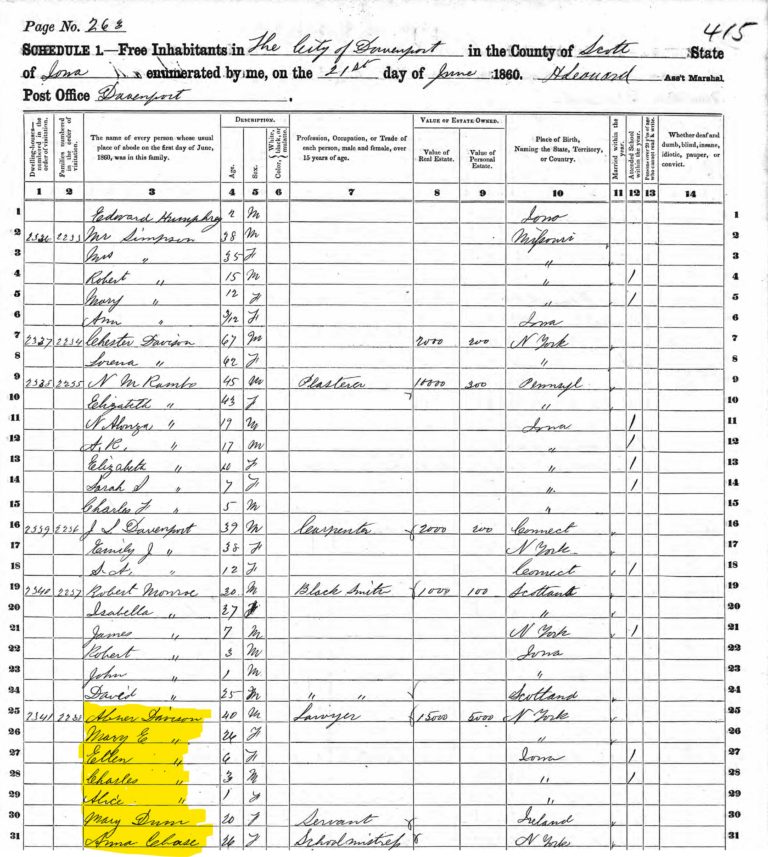 Page No. 263
415
SCHEDULE 1.—Free Inhabitants in The City of Davenport in the County of Scott State
of Iowa enumerated by me, on the 21st day of June 1860. Ass't Marshal
Post Office Davenport.
Dwelling-houses—numbered in the order of visitation.
Families numbered in the order of visitation.
The name of every person whose usual place of abode on the first day of June, 1860, was in this family.
DESCRIPTION.
Age.
Sex.
Color, White, black, or mulatto.
Profession, Occupation, or Trade of each person, male and female, over 15 years of age.
VALUE OF ESTATE OWNED.
Value of Real Estate.
Value of Personal Estate.
Place of Birth, Naming the State, Territory, or Country.
Married within the year.
Attended School within the year.
Persons over 20 y'rs of age who cannot read & write.
Whether deaf and dumb, blind, insane, idiotic, pauper, or convict.
1 2 3 4 5 6 7 8 9 10 11 12 13 14
1 Edward Humphrey 2 M Iowa 1
2 2233 Mr Simpson 38 M Missouri 2
3 Mrs " 35 F " 3
4 Robert " 15 M " / 4
5 Mary " 12 F " / 5
6 Ann " 3/12 F Iowa 6
7 2337 2234 Chester Davison 67 M 2000 200 N York 7
8 Lorena " 62 F " 8
9 2235 N M Rambo 45 M Plasterer 10000 300 Pennsyl 9
10 Elizabeth " 43 F " 10
11 N Alonza " 19 M Iowa / 11
12 A. R. " 17 M " / 12
13 Elizabeth " 10 F " / 13
14 Sarah S " 7 F " / 14
15 Charles F " 5 M " 15
16 2339 2236 J S Davenport 39 M Carpenter 2000 200 Connect 16
17 Emily J " 38 F N York 17
18 S. A. " 12 F Connect / 18
19 2340 2237 Robert Monroe 30 M Black Smith 1000 100 Scotland 19
20 Isabella " 27 F " 20
21 James " 7 M N York / 21
22 Robert " 3 M Iowa 22
23 John " 1 M " 23
24 David " 25 M " " Scotland 24
25 2341 2238 Abner Davison 40 M Lawyer 15000 5000 N York 25
26 Mary E " 26 F " 26
27 Ellen " 6 F Iowa / 27
28 Charles " 3 M " / 28
29 Alice " 1 F 29
30 Mary Dunn 20 F Servant Ireland 30
31 Anna Chase 26 F Schoolmistress N York 31